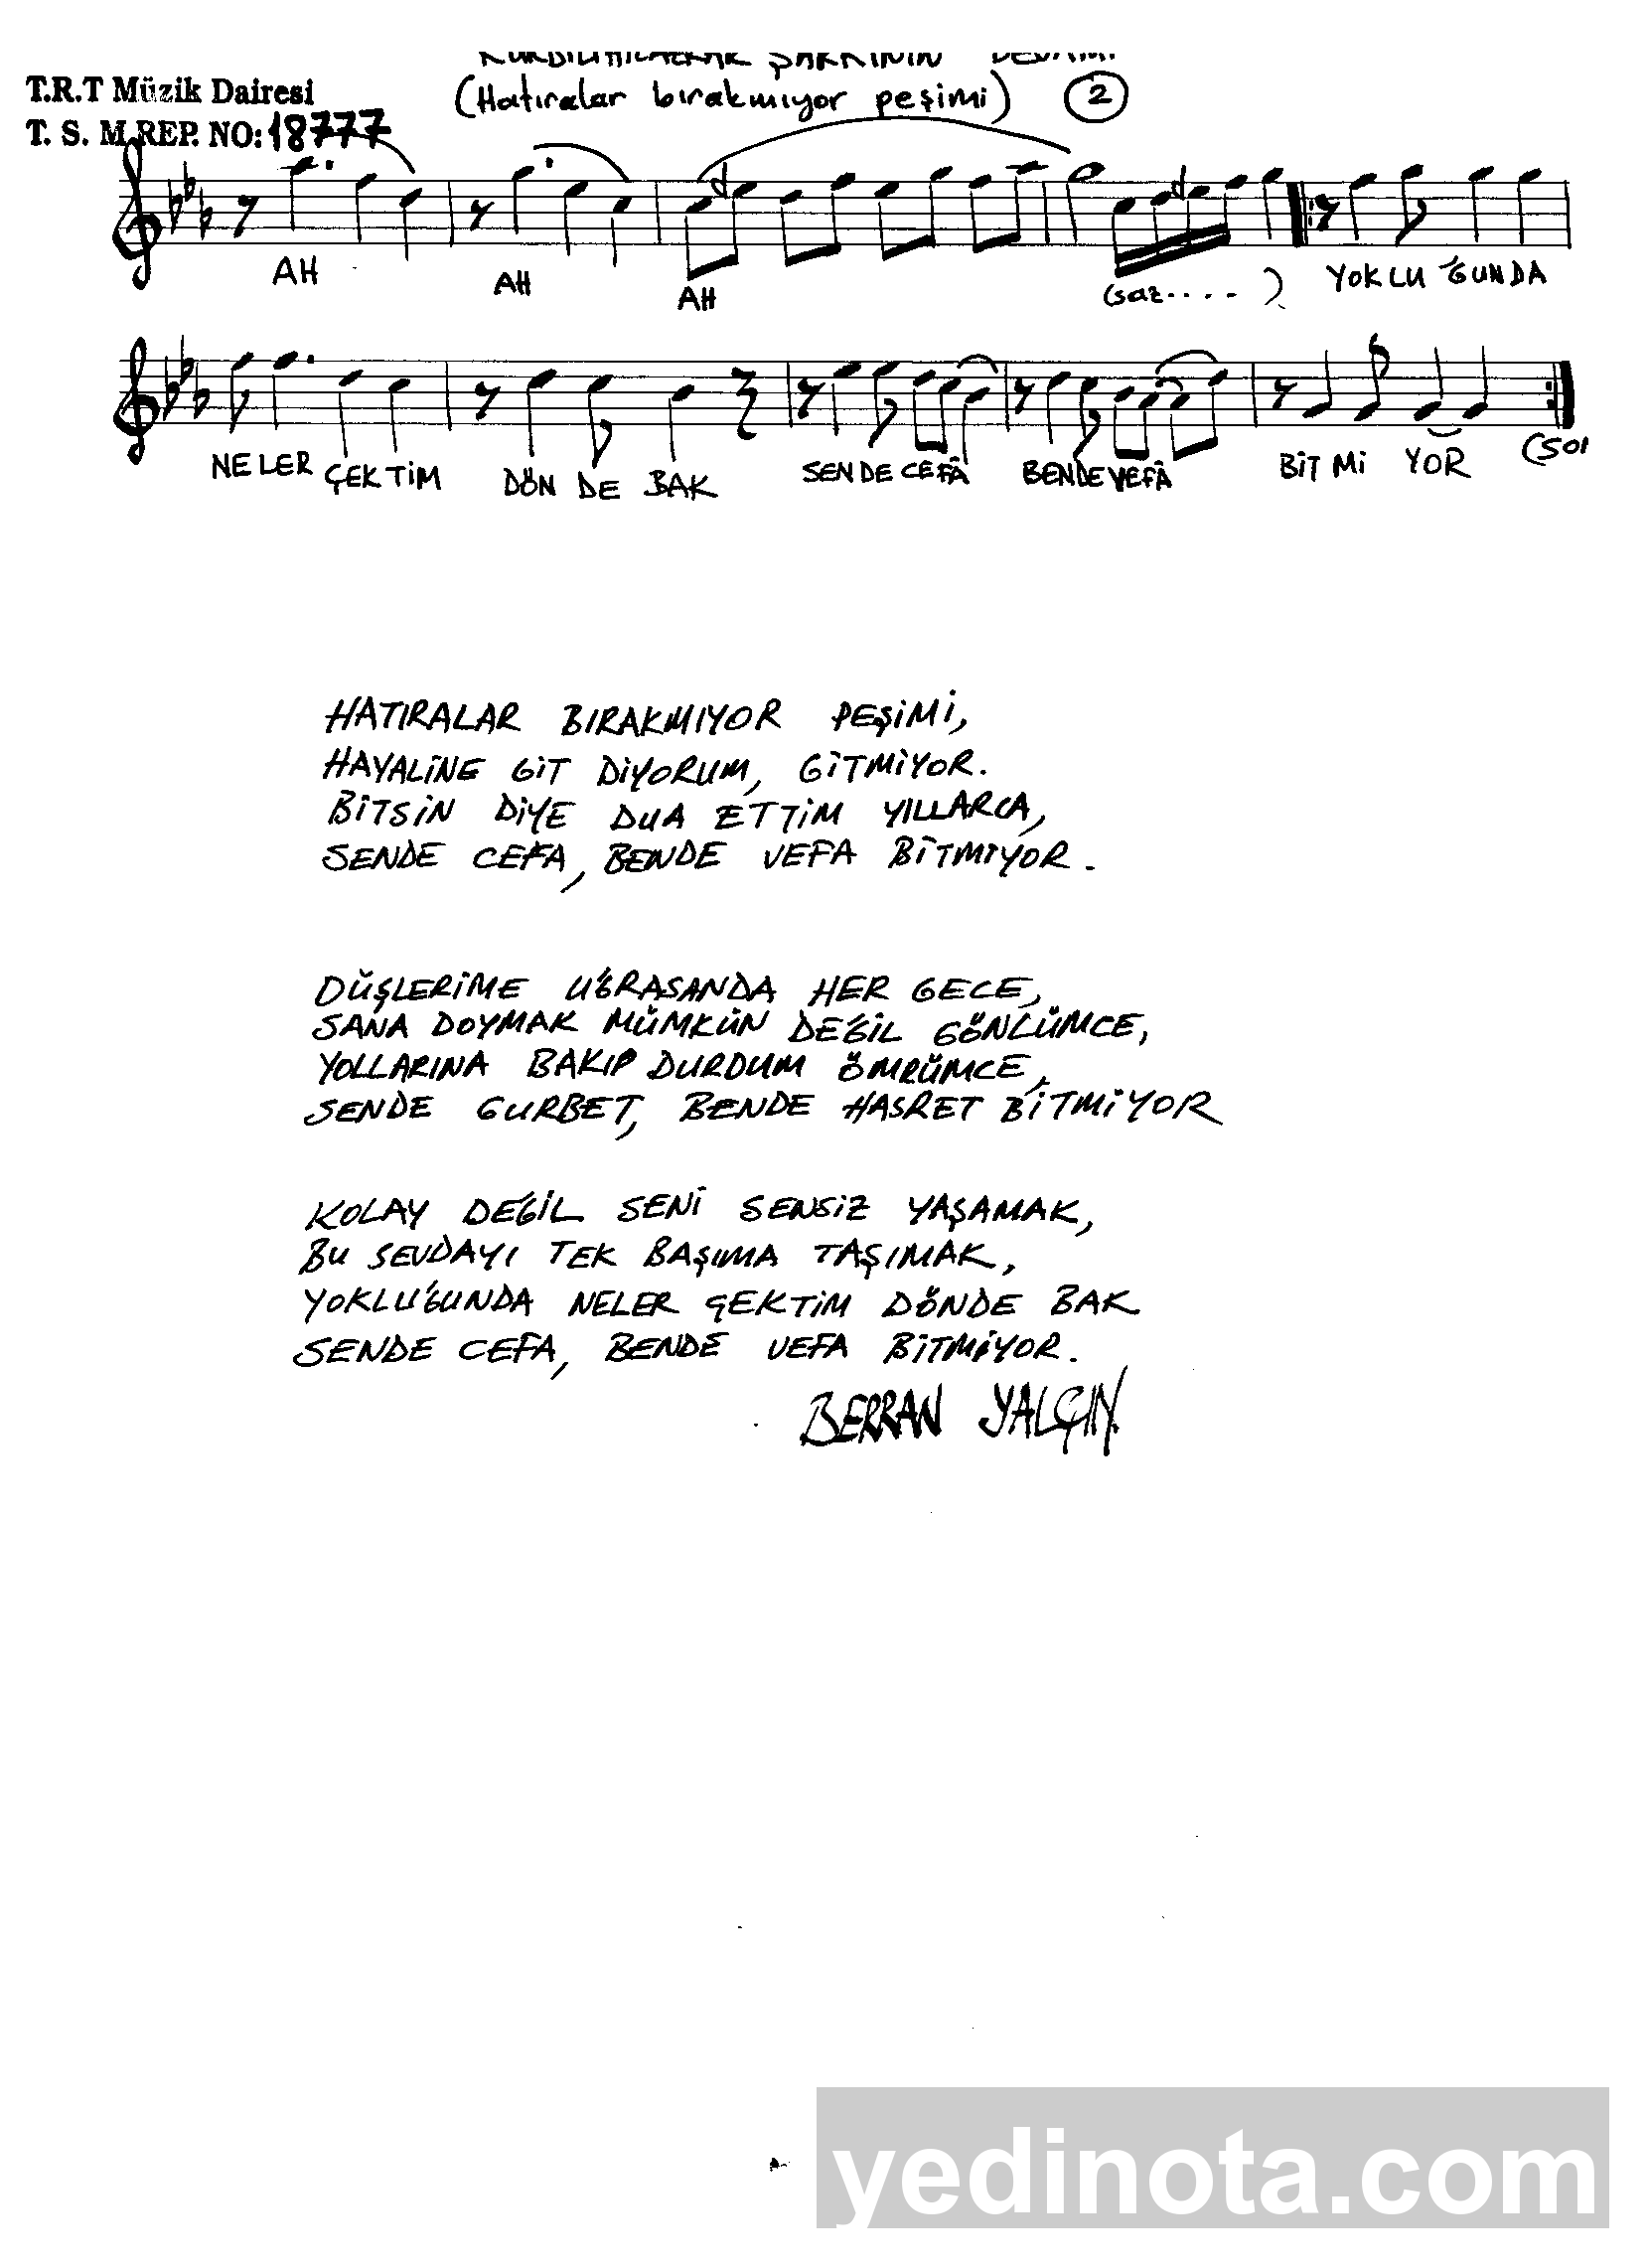 T.R.T Müzik Dairesi
T. S. M. REP. NO: 18777
KÜRDİLİHİCAZKAR ŞARKININ DEVAMI
(Hatıralar bırakmıyor peşimi) 2
AH AH AH (saz....) YOKLU ĞUNDA
NE LER ÇEK TİM DÖN DE BAK SEN DE CEFÂ BENDE VEFÂ BİT Mİ YOR (SOI
HATIRALAR BIRAKMIYOR PEŞİMİ,
HAYALİNE GİT DİYORUM, GİTMİYOR.
BİTSİN DİYE DUA ETTİM YILLARCA,
SENDE CEFA, BENDE VEFA BİTMİYOR.
DÜŞLERİME UĞRASANDA HER GECE,
SANA DOYMAK MÜMKÜN DEĞİL GÖNLÜMCE,
YOLLARINA BAKIP DURDUM ÖMRÜMCE,
SENDE GURBET, BENDE HASRET BİTMİYOR
KOLAY DEĞİL SENİ SENSİZ YAŞAMAK,
BU SEVDAYI TEK BAŞIMA TAŞIMAK,
YOKLUĞUNDA NELER ÇEKTİM DÖNDE BAK
SENDE CEFA, BENDE VEFA BİTMİYOR.
BERRAN YALÇIN
yedinota.com